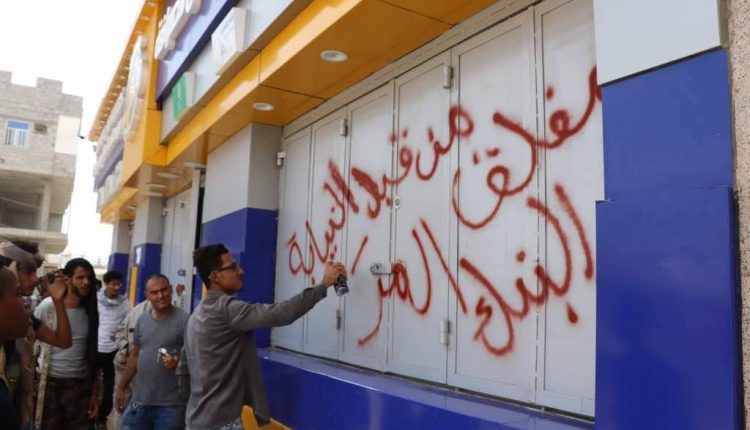 مغلق من قبل النيابة
البنك المر